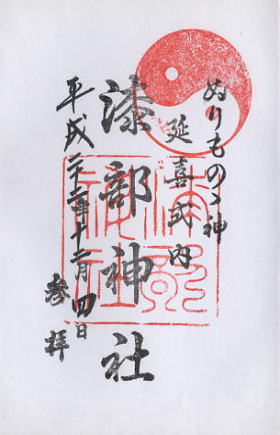 ぬりものゝ神
延喜式内
漆部神社
平成二十二年十二月四日
参拝
漆部
神社